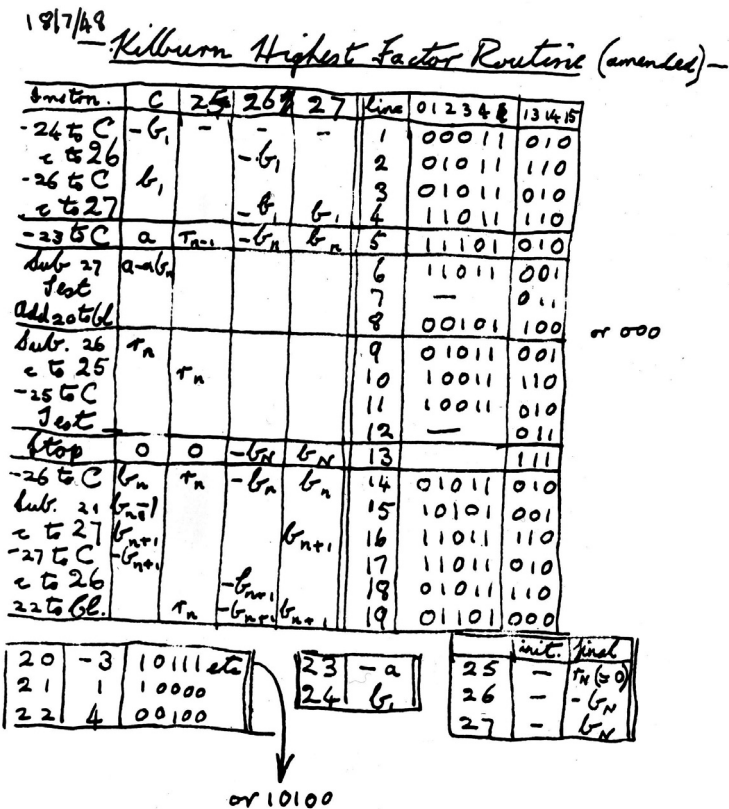 18/7/48
Kilburn Highest Factor Routine (amended) —
Instrn. C 25 26 27 line 0 1 2 3 4 13 14 15
-24 to C -b₁ - - - 1 00011 010
c to 26 -b₁ 2 01011 110
-26 to C b₁ 3 01011 010
c to 27 -b₁ b₁ 4 11011 110
-23 to C a rₙ₋₁ -bₙ bₙ 5 11101 010
Sub. 27 a-abₙ 6 11011 001
Test 7 — 011
Add 20 to bl. 8 00101 100 or 000
Sub. 26 rₙ 9 01011 001
c to 25 rₙ 10 10011 110
-25 to C 11 10011 010
Test 12 — 011
Stop 0 0 -b_N b_N 13 111
-26 to C bₙ rₙ -bₙ bₙ 14 01011 010
Sub. 21 bₙ-1 15 10101 001
c to 27 bₙ₊₁ bₙ₊₁ 16 11011 110
-27 to C -bₙ₊₁ 17 11011 010
c to 26 -bₙ₊₁ 18 01011 110
22 to bl. rₙ -bₙ₊₁ bₙ₊₁ 19 01101 000
20 -3 10111 etc
21 1 10000
22 4 00100
or 10100
23 -a
24 b₁
init. final
25 - r_N (=0)
26 - -b_N
27 - b_N